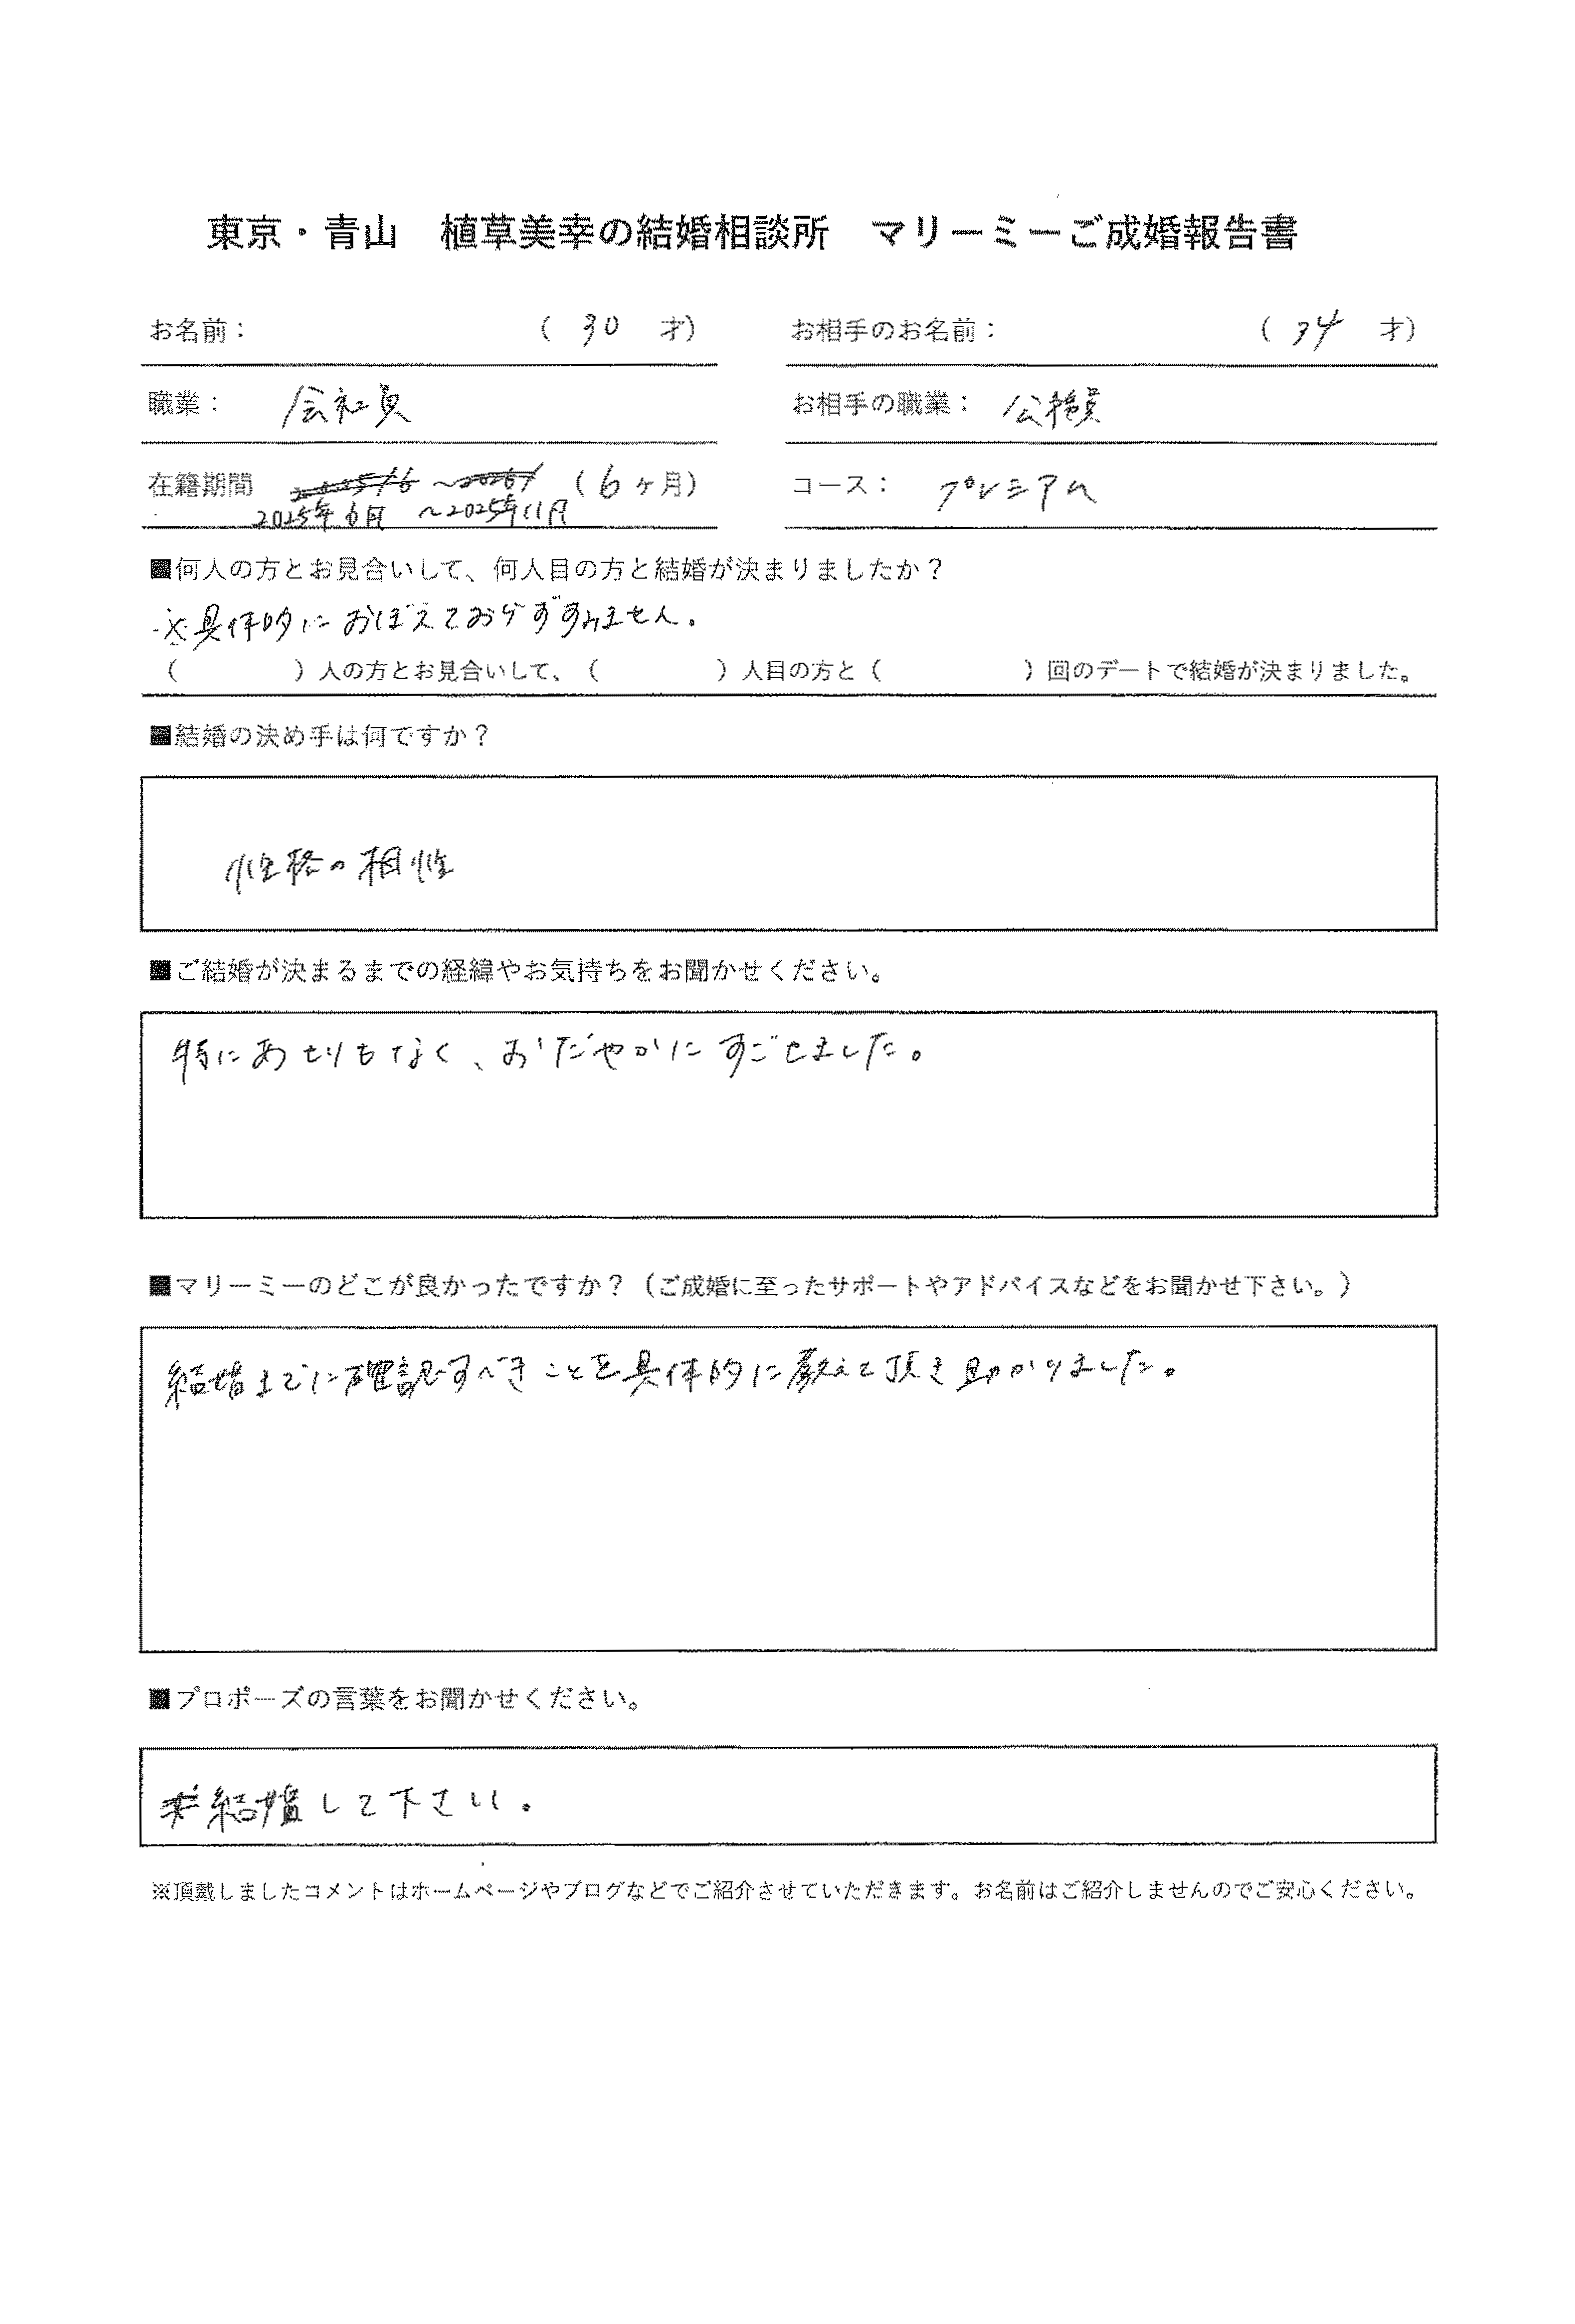 東京・青山　植草美幸の結婚相談所　マリーミーご成婚報告書
お名前：　（ 30 才）　お相手のお名前：　（ 34 才）
職業：　会社員　お相手の職業：　公務員
在籍期間　（ 6 ヶ月）　コース：　プレミアム
2025年6月 ～2025年11月
■何人の方とお見合いして、何人目の方と結婚が決まりましたか？
※具体的におぼえておらずすみません。
（　　　）人の方とお見合いして、（　　　）人目の方と（　　　）回のデートで結婚が決まりました。
■結婚の決め手は何ですか？
性格の相性
■ご結婚が決まるまでの経緯やお気持ちをお聞かせください。
特にあせりもなく、おだやかにすごせました。
■マリーミーのどこが良かったですか？（ご成婚に至ったサポートやアドバイスなどをお聞かせ下さい。）
結婚までに確認すべきことを具体的に教えて頂き助かりました。
■プロポーズの言葉をお聞かせください。
結婚して下さい。
※頂戴しましたコメントはホームページやブログなどでご紹介させていただきます。お名前はご紹介しませんのでご安心ください。